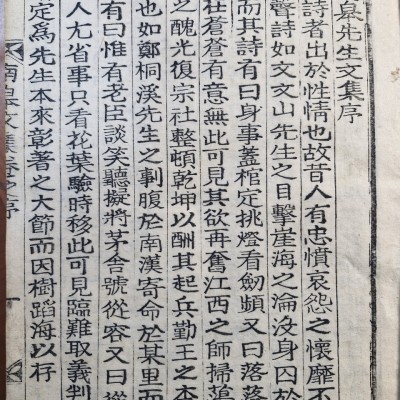 皐先生文集序
詩者出於性情也故昔人有忠憤哀怨之懷靡不
聲詩如文文山先生之目擊崖海之淪沒身囚於
而其詩有曰身事蓋棺定挑燈看劒頻又曰落落
社蒼蒼有意無此可見其欲再奮江西之師掃蕩
之醜光復宗社整頓乾坤以酬其起兵勤王之本
也如鄭桐溪先生之剚腹於南漢寄命於某里而
有曰惟有老臣談笑聽擬將茅舍號從容又曰
人尢省事只看花葉驗時移此可見臨難取義判
定爲先生本來彰著之大節而因樹蹈海以存
南皐文集卷之序 一